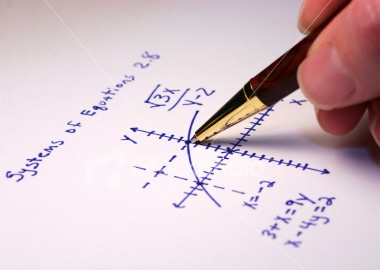 Systems of Equations 2.8
√3x / y-2
Y
X
x=-2
3+x=9y
x-4y=2